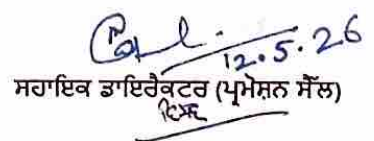 12.5.26
ਸਹਾਇਕ ਡਾਇਰੈਕਟਰ (ਪ੍ਰਮੋਸ਼ਨ ਸੈੱਲ)